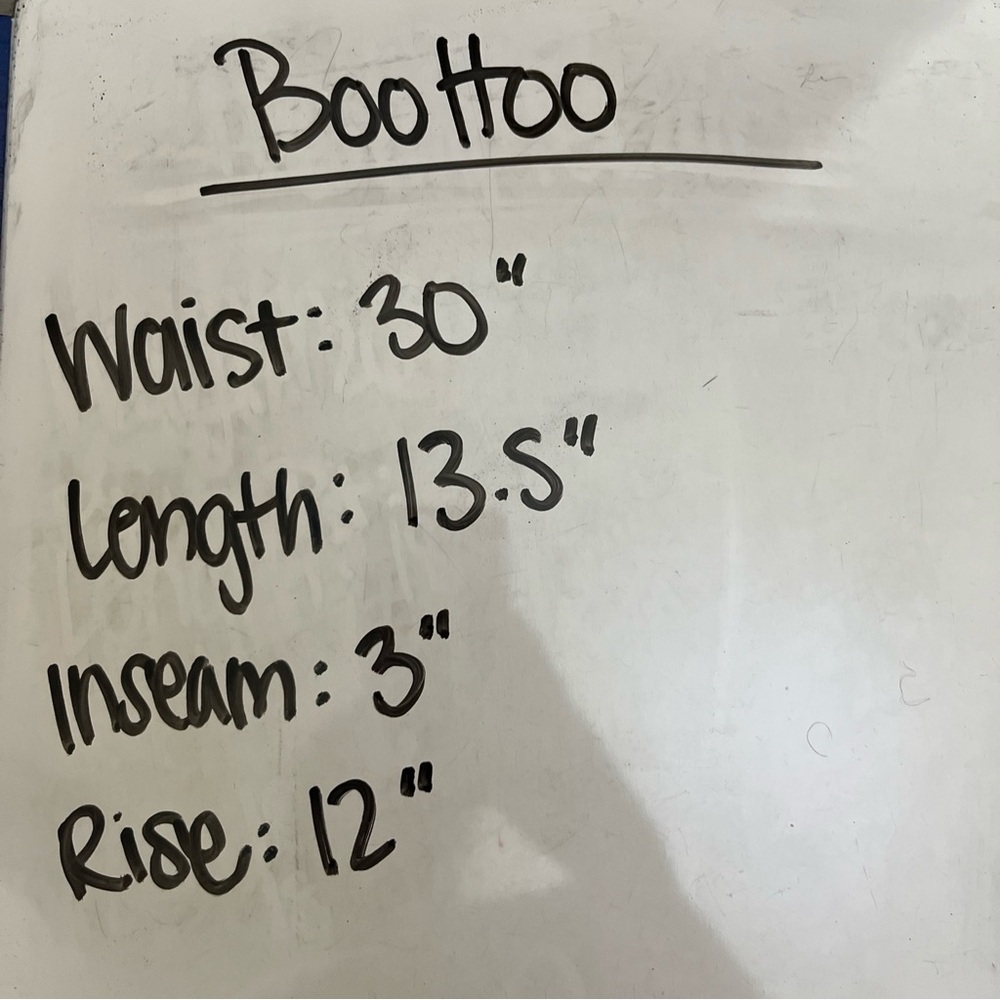 BooHoo
Waist: 30"
Length: 13.5"
Inseam: 3"
Rise: 12"